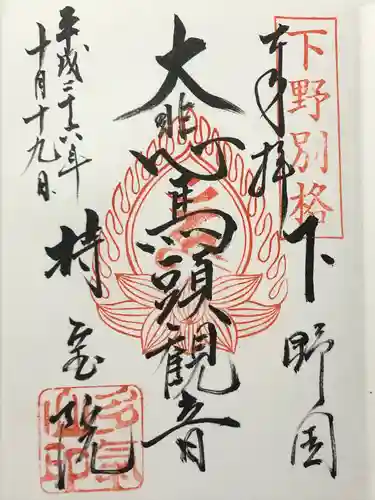 下野別格
奉拝
下野国
大悲心馬頭観音
平成二十六年
十月十九日
持宝院